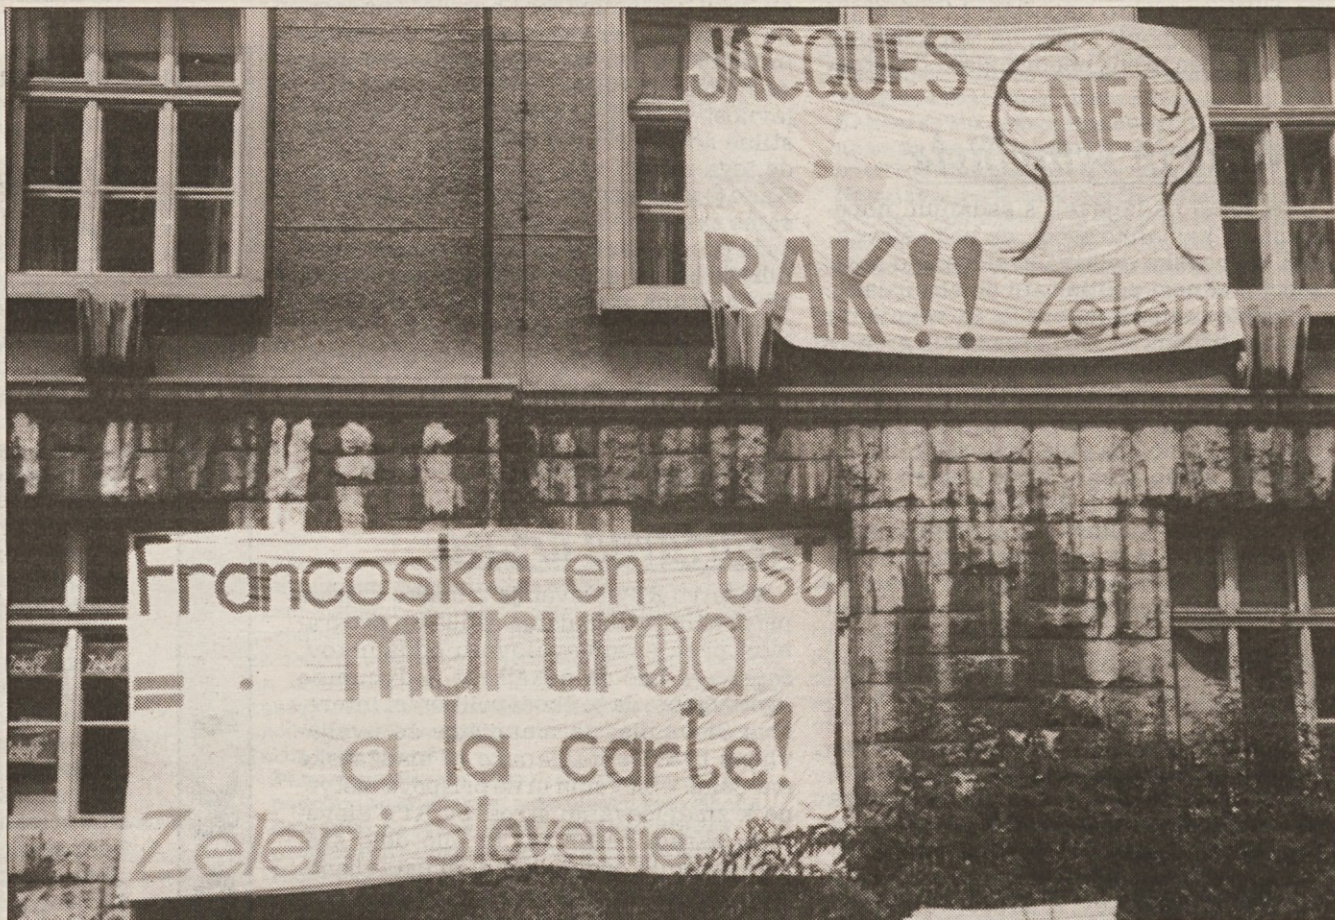 JACQUES
NE!
RAK!!
Zeleni
Francoska en ost
= mururoa
a la carte!
Zeleni Slovenije